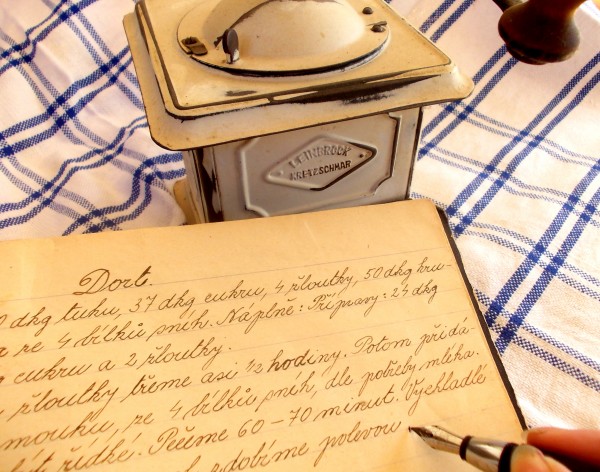 LEINBROCK
Dort.
dkg tuku, 37 dkg cukru, 4 žloutky, 50 dkg hru-
ze 4 bílků sníh. Náplně: Přípravy: 25 dkg
cukru a 2 žloutky.
žloutky třeme asi 1/2 hodiny. Potom přidá-
mouku, ze 4 bílků sníh, dle potřeby mléka.
řídké. Pečeme 60-70 minut. Vychladlé
zdobíme polevou